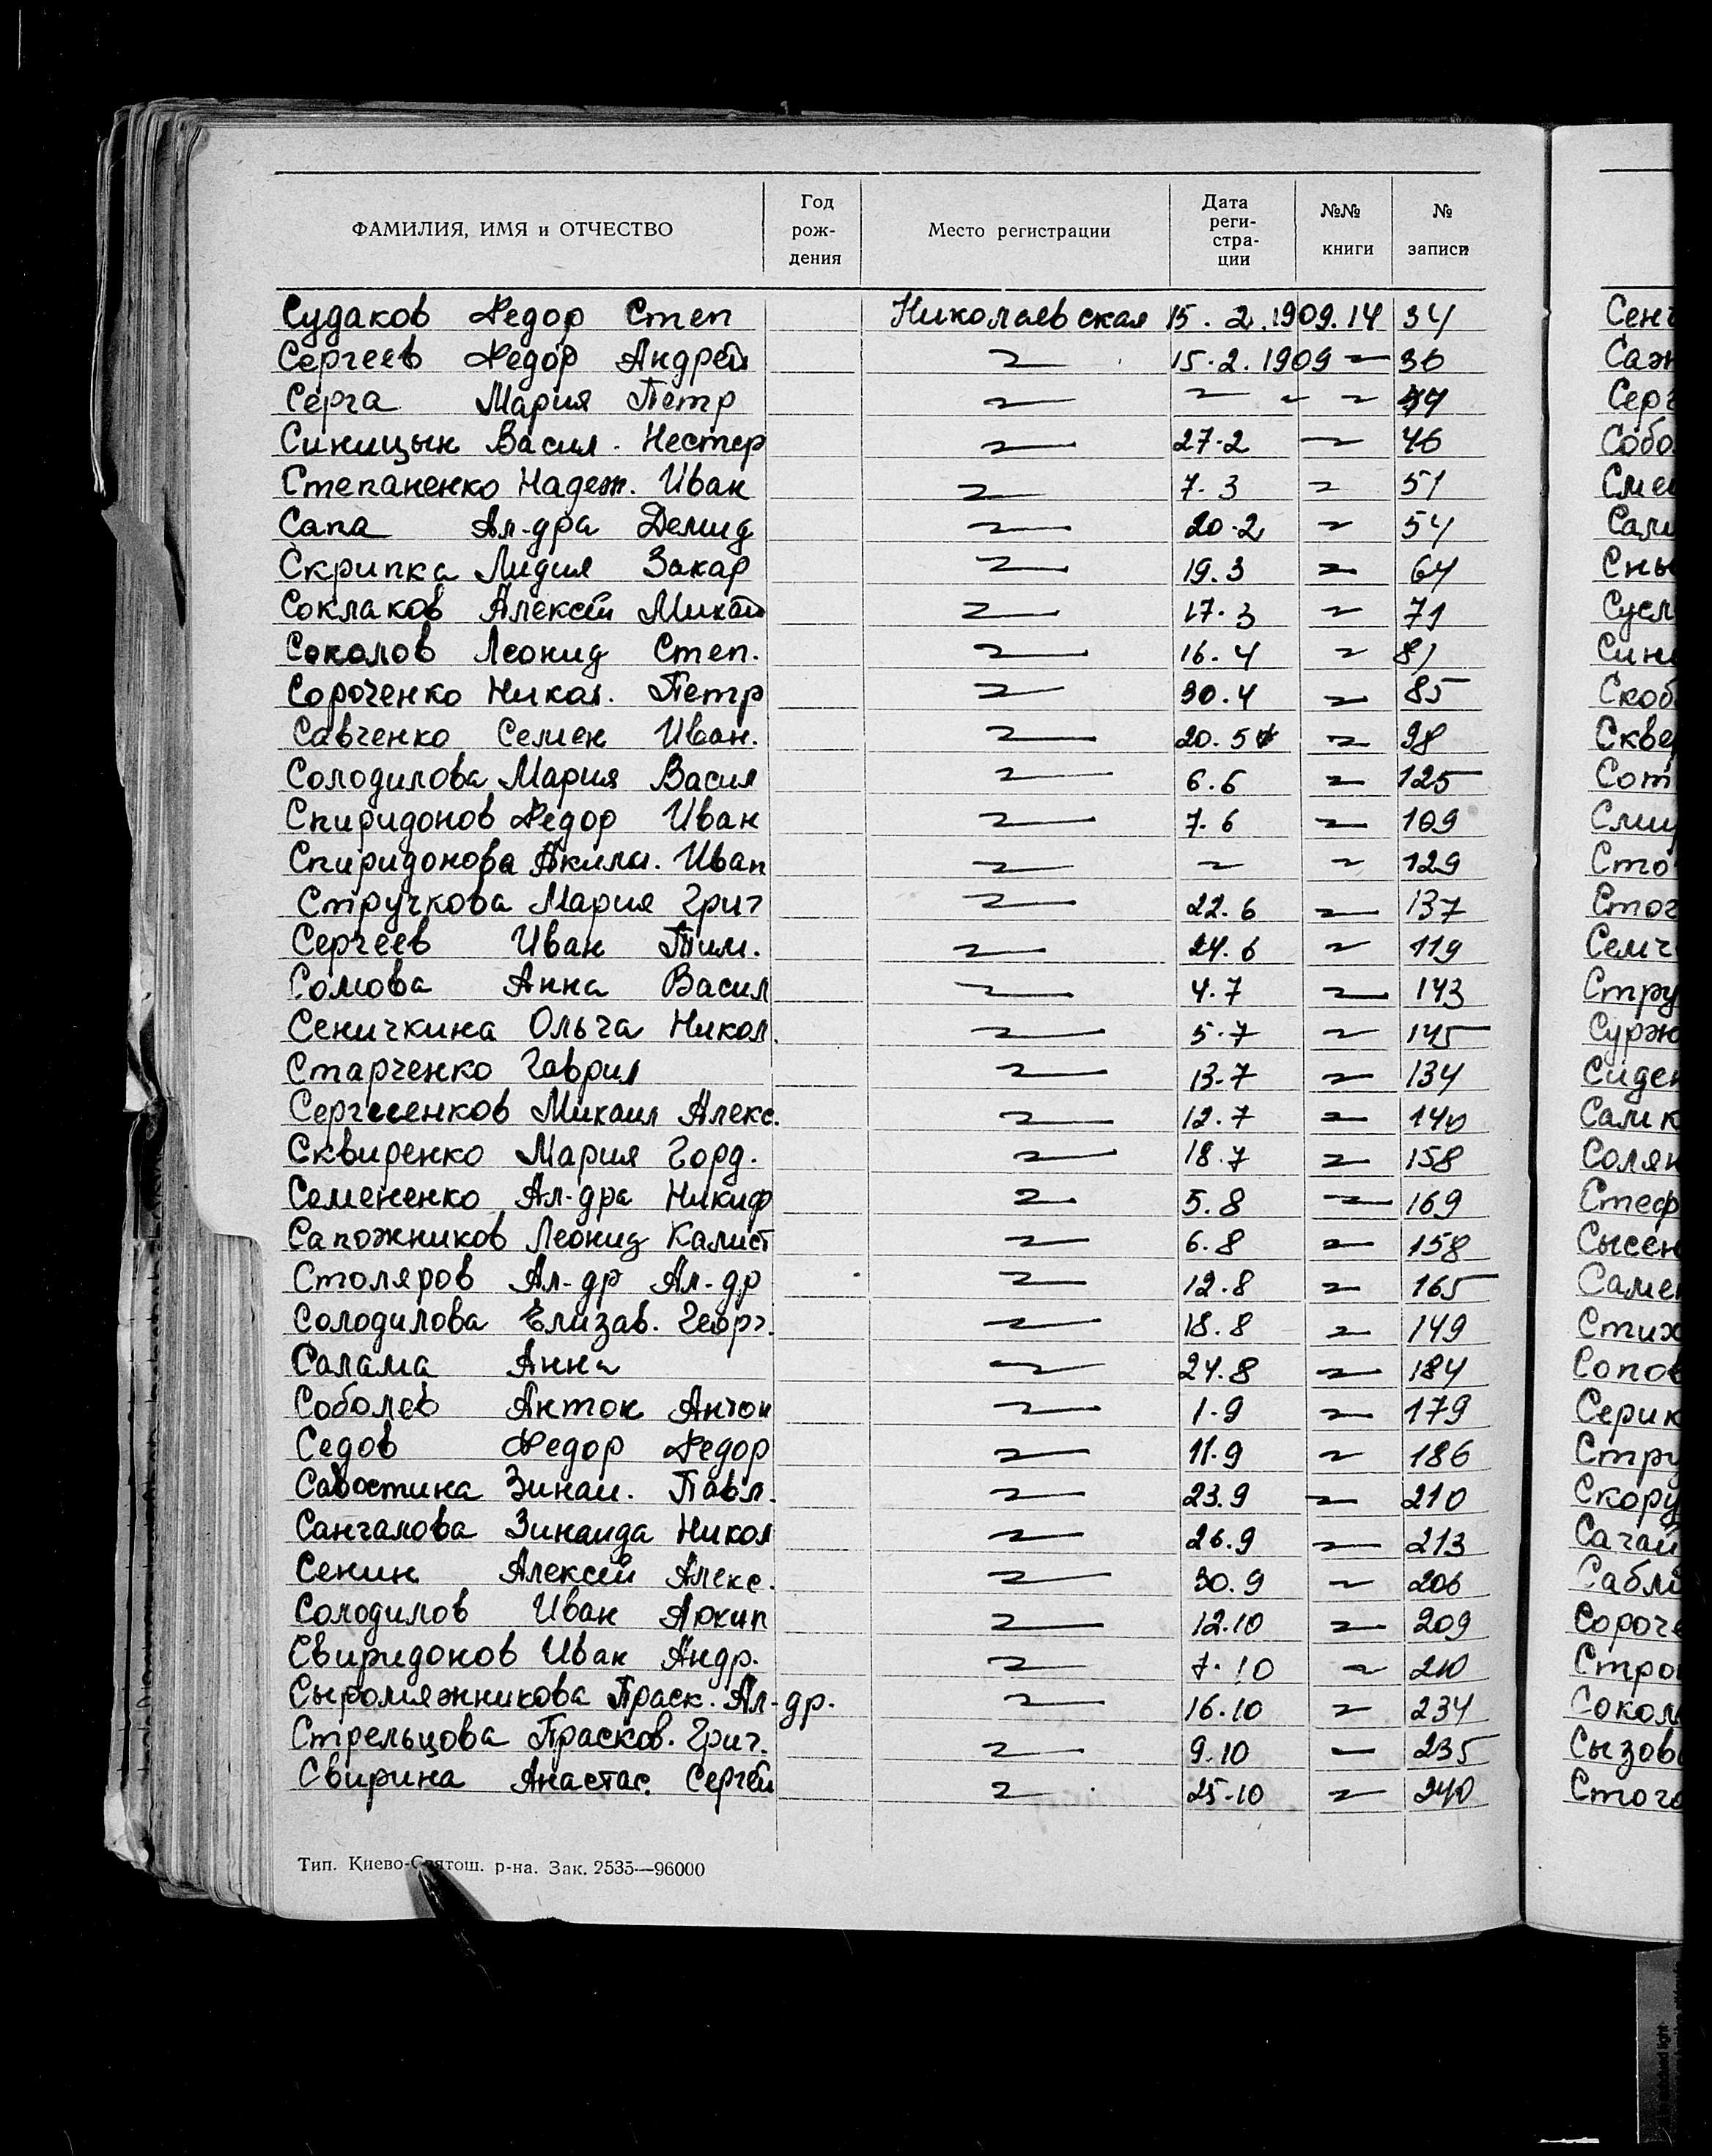 ФАМИЛИЯ, ИМЯ и ОТЧЕСТВО Год рождения Место регистрации Дата регистрации №№ книги № записи
Судаков Федор Степ Николаевская 15.2.1909.14 34
Сергеев Федор Андрей 〃 15.2.1909 〃 36
Серга Мария Петр 〃 〃 〃 〃 44
Синицын Васил. Нестер 〃 27.2 〃 46
Степаненко Надеж. Иван 〃 7.3 〃 51
Сапа Ал-дра Демид 〃 20.2 〃 54
Скрипка Лидия Захар 〃 19.3 〃 64
Соклаков Алексей Михай 〃 17.3 〃 71
Соколов Леонид Степ. 〃 16.4 〃 81
Сороченко Никол. Петр 〃 30.4 〃 85
Савченко Семен Иван. 〃 20.5 〃 98
Солодилова Мария Васил 〃 6.6 〃 125
Спиридонов Федор Иван 〃 7.6 〃 109
Спиридонова Акилл. Иван 〃 〃 〃 129
Стручкова Мария Григ 〃 22.6 〃 137
Сергеев Иван Тим. 〃 24.6 〃 119
Сомова Анна Васил 〃 4.7 〃 143
Сеничкина Ольга Никол. 〃 5.7 〃 145
Старченко Гаврил 〃 13.7 〃 134
Сергеенков Михаил Алекс. 〃 12.7 〃 140
Сквиренко Мария Горд. 〃 18.7 〃 158
Семененко Ал-дра Никиф 〃 5.8 〃 169
Сапожников Леонид Калист 〃 6.8 〃 158
Столяров Ал-др Ал-др 〃 12.8 〃 165
Солодилова Елизав. Георг. 〃 18.8 〃 149
Салама Анна 〃 24.8 〃 184
Соболев Антон Антон 〃 1.9 〃 179
Седов Федор Федор 〃 11.9 〃 186
Савостина Зинаи. Павл. 〃 23.9 〃 210
Сангалова Зинаида Никол 〃 26.9 〃 213
Сенин Алексей Алекс. 〃 30.9 〃 206
Солодилов Иван Архип 〃 12.10 〃 209
Свиридонов Иван Андр. 〃 7.10 〃 210
Сыромяжникова Праск. Ал-др. 〃 16.10 〃 234
Стрельцова Прасков. Григ. 〃 9.10 〃 235
Свирина Анастас. Сергей 〃 25.10 〃 240
Тип. Киево-Святош. р-на. Зак. 2535—96000